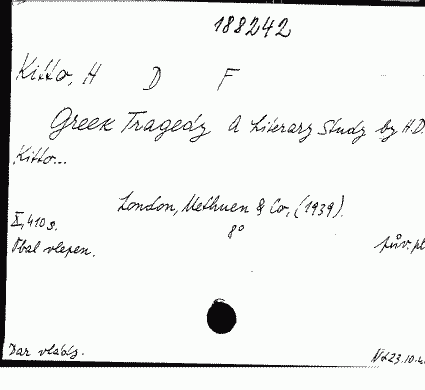 188242
Kitto, H D F
Greek Tragedy A Literary Study by H.D.
Kitto...
London, Methuen & Co, (1939).
X, 410 s. 8°
Obal vlepen. pův. pl
Dar vlády. 23.10.4